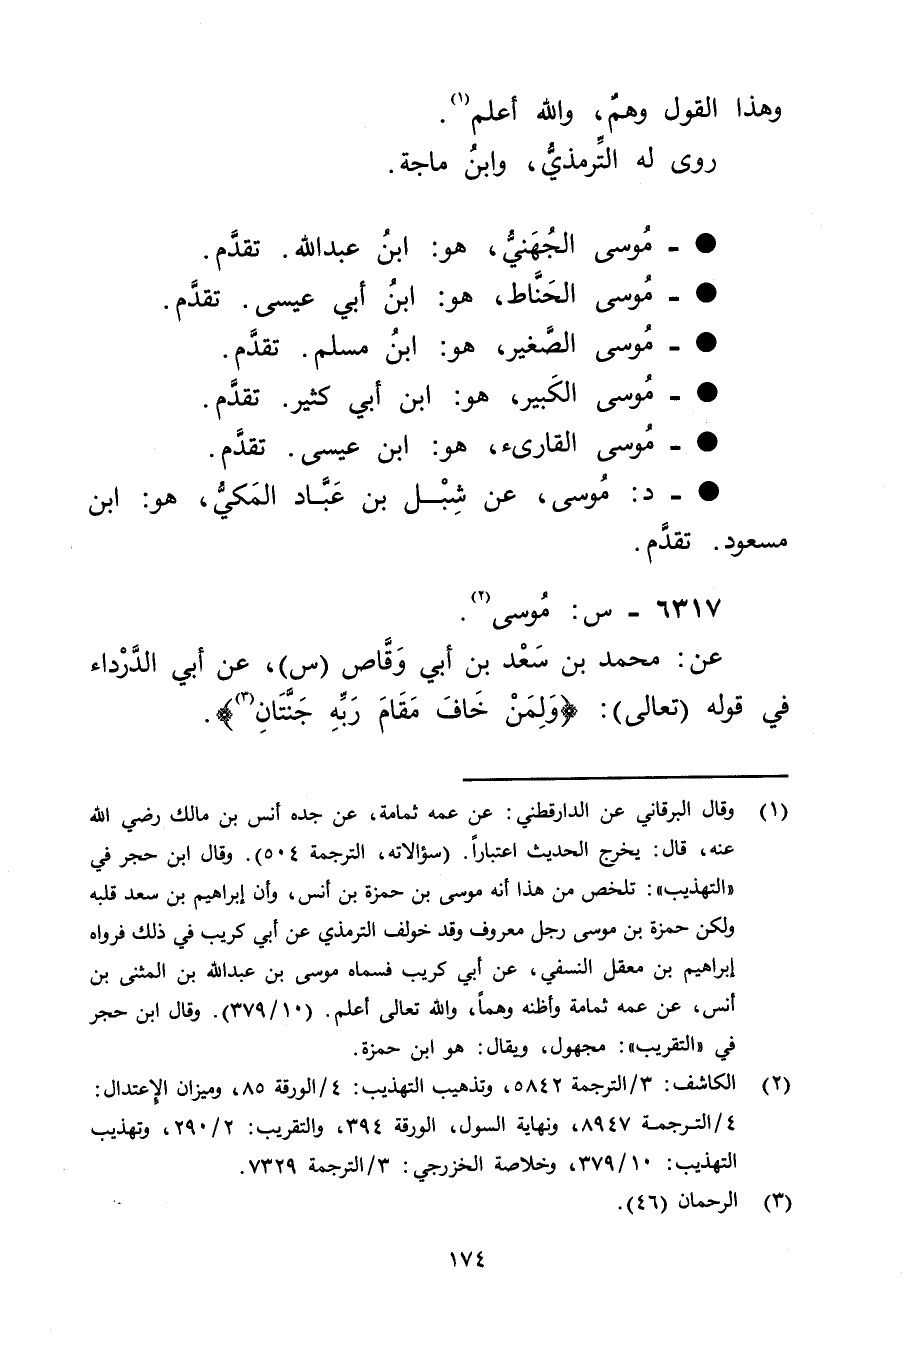 وهذا القول وهمٌ، والله أعلم(١).
روى له التِّرمذيُّ، وابنُ ماجة.
● ـ مُوسى الجُهَنيُّ، هو: ابنُ عبدالله. تقدَّم.
● ـ مُوسى الحَنَّاط، هو: ابنُ أبي عيسى. تقدَّم.
● ـ مُوسى الصَّغير، هو: ابنُ مسلم. تقدَّم.
● ـ مُوسى الكَبير، هو: ابن أبي كثير. تقدَّم.
● ـ مُوسى القارىء، هو: ابن عيسى. تقدَّم.
● ـ د: مُوسى، عن شِبْل بن عَبَّاد المَكيُّ، هو: ابن
مسعود. تقدَّم.
٦٣١٧ ـ س: مُوسى(٢).
عن: محمد بن سَعْد بن أبي وَقَّاص (س)، عن أبي الدَّرْداء
في قوله (تعالى): ﴿وَلِمَنْ خَافَ مَقَامَ رَبِّهِ جَنَّتَانِ(٣)﴾.
(١) وقال البرقاني عن الدارقطني: عن عمه ثمامة، عن جده أنس بن مالك رضي الله
عنه، قال: يخرج الحديث اعتباراً. (سؤالاته، الترجمة ٥٠٤). وقال ابن حجر في
«التهذيب»: تلخص من هذا أنه موسى بن حمزة بن أنس، وأن إبراهيم بن سعد قلبه
ولكن حمزة بن موسى رجل معروف وقد خولف الترمذي عن أبي كريب في ذلك فرواه
إبراهيم بن معقل النسفي، عن أبي كريب فسماه موسى بن عبدالله بن المثنى بن
أنس، عن عمه ثمامة وأظنه وهماً، والله تعالى أعلم. (٣٧٩/١٠). وقال ابن حجر
في «التقريب»: مجهول، ويقال: هو ابن حمزة.
(٢) الكاشف: ٣/الترجمة ٥٨٤٢، وتذهيب التهذيب: ٤/الورقة ٨٥، وميزان الإعتدال:
٤/الترجمة ٨٩٤٧، ونهاية السول، الورقة ٣٩٤، والتقريب: ٢٩٠/٢، وتهذيب
التهذيب: ٣٧٩/١٠، وخلاصة الخزرجي: ٣/الترجمة ٧٣٢٩.
(٣) الرحمان (٤٦).
١٧٤